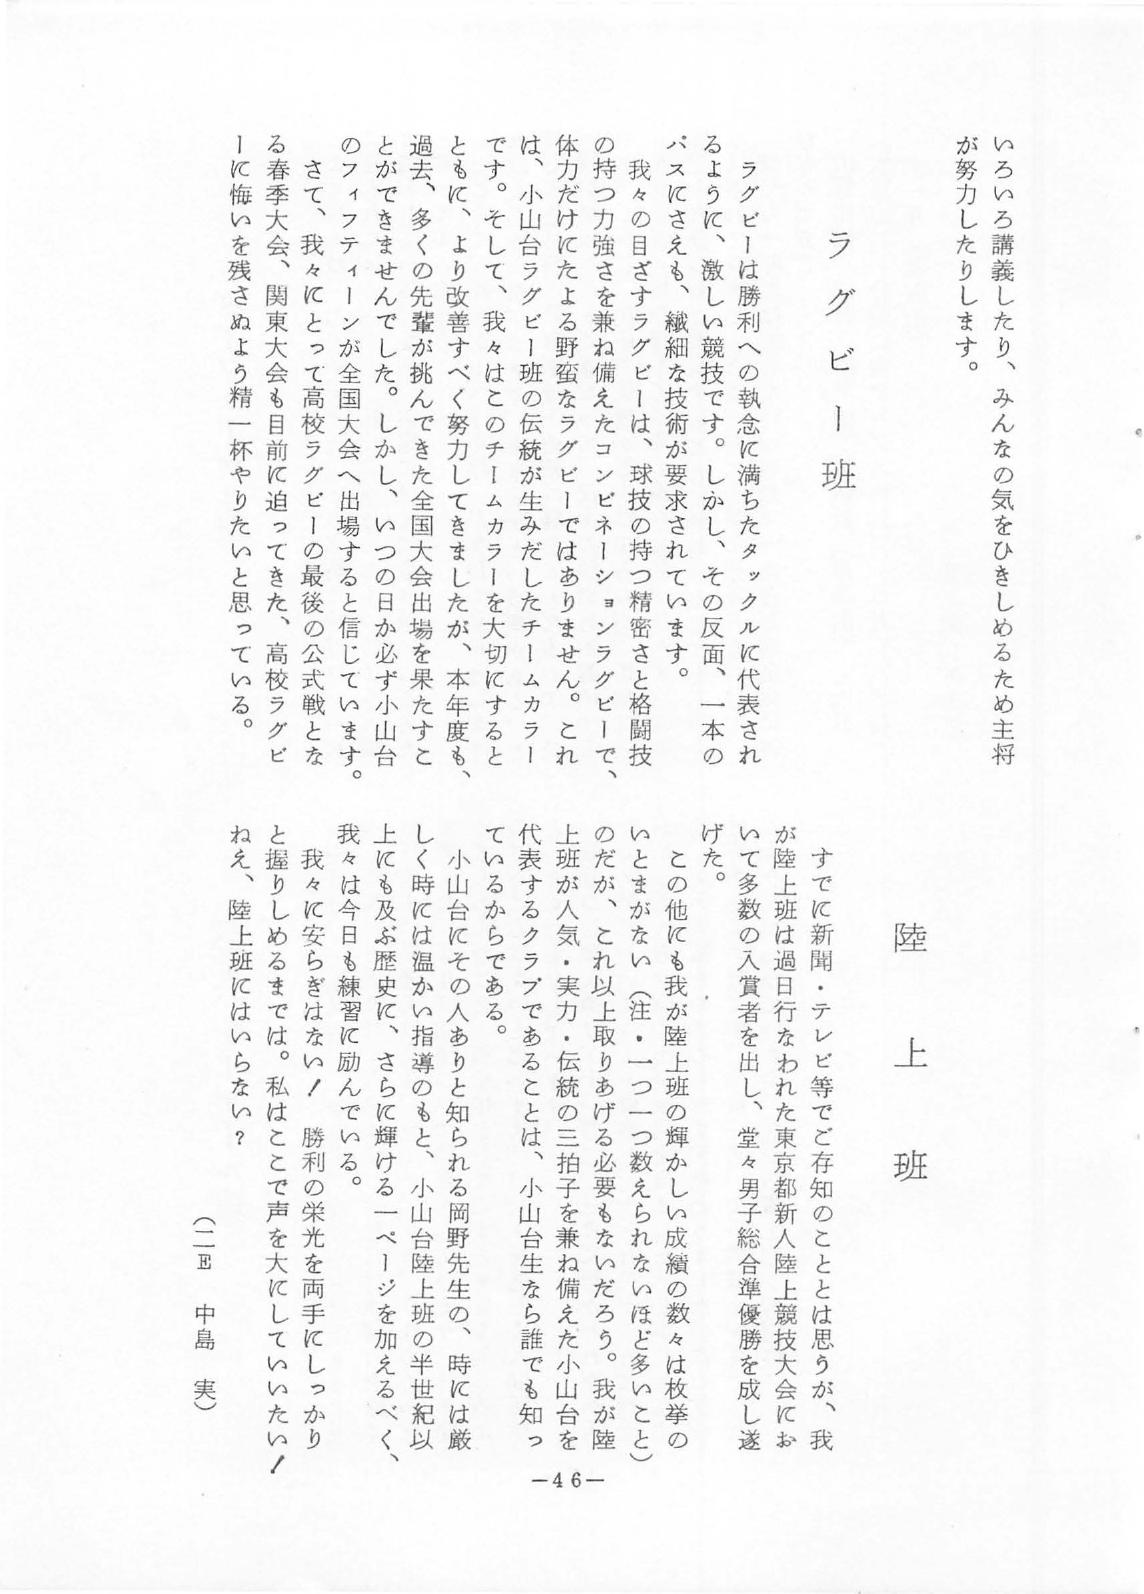 いろいろ講義したり、みんなの気をひきしめるため主将
が努力したりします。
ラグビー班
ラグビーは勝利への執念に満ちたタックルに代表され
るように、激しい競技です。しかし、その反面、一本の
パスにさえも、繊細な技術が要求されています。
我々の目ざすラグビーは、球技の持つ精密さと格闘技
の持つ力強さを兼ね備えたコンビネーションラグビーで、
体力だけにたよる野蛮なラグビーではありません。これ
は、小山台ラグビー班の伝統が生みだしたチームカラー
です。そして、我々はこのチームカラーを大切にすると
ともに、より改善すべく努力してきましたが、本年度も、
過去、多くの先輩が挑んできた全国大会出場を果たすこ
とができませんでした。しかし、いつの日か必ず小山台
のフィフティーンが全国大会へ出場すると信じています。
さて、我々にとって高校ラグビーの最後の公式戦とな
る春季大会、関東大会も目前に迫ってきた、高校ラグビ
ーに悔いを残さぬよう精一杯やりたいと思っている。
陸上班
すでに新聞・テレビ等でご存知のこととは思うが、我
が陸上班は過日行なわれた東京都新人陸上競技大会にお
いて多数の入賞者を出し、堂々男子総合準優勝を成し遂
げた。
この他にも我が陸上班の輝かしい成績の数々は枚挙の
いとまがない（注・一つ一つ数えられないほど多いこと）
のだが、これ以上取りあげる必要もないだろう。我が陸
上班が人気・実力・伝統の三拍子を兼ね備えた小山台を
代表するクラブであることは、小山台生なら誰でも知っ
ているからである。
小山台にその人ありと知られる岡野先生の、時には厳
しく時には温かい指導のもと、小山台陸上班の半世紀以
上にも及ぶ歴史に、さらに輝ける一ページを加えるべく、
我々は今日も練習に励んでいる。
我々に安らぎはない！　勝利の栄光を両手にしっかり
と握りしめるまでは。私はここで声を大にしていいたい！
ねえ、陸上班にはいらない？
（二E　中島　実）
―46―